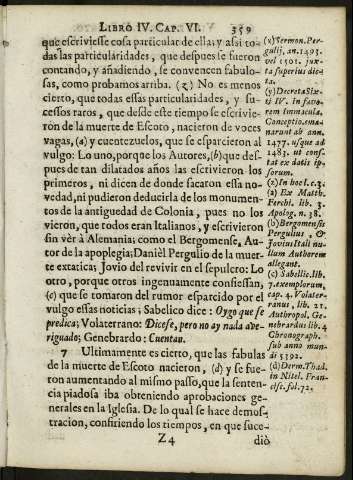 LIBRO IV. CAP. VI. 359
que escriviesse cosa particular de ella; y asi to-
das las particularidades, que despues se fueron
contando, y añadiendo, se convencen fabulo-
sas, como probamos arriba. (z) No es menos
cierto, que todas essas particularidades, y su-
cessos raros, que desde este tiempo se escrivie-
ron de la muerte de Escoto, nacieron de voces
vagas, (a) y cuentezuelos, que se esparcieron al
vulgo: Lo uno, porque los Autores, (b) que des-
pues de tan dilatados años las escrivieron los
primeros, ni dicen de donde sacaron essa no-
vedad, ni pudieron deducirla de los monumen-
tos de la antiguedad de Colonia, pues no los
vieron, que todos eran Italianos, y escrivieron
sin vèr à Alemania; como el Bergomense, Au-
tor de la apoplegia; Daniel Pergulio de la muer-
te extatica; Jovio del revivir en el sepulcro: Lo
otro, porque otros ingenuamente confiessan,
(c) que se tomaron del rumor esparcido por el
vulgo essas noticias; Sabelico dice: Oygo que se
predica; Volaterrano: Dicese, pero no ay nada ave-
riguado; Genebrardo: Cuentan.
7 Ultimamente es cierto, que las fabulas
de la muerte de Escoto nacieron, (d) y se fue-
ron aumentando al mismo passo, que la senten-
cia piadosa iba obteniendo aprobaciones ge-
nerales en la Iglesia. De lo qual se hace demos-
tracion, confiriendo los tiempos, en que suce-
Z 4 diò
(x) Sermon. Per-
gulij, an. 1493.
vel 1501. jux-
ta superius dic-
ta.
(y) Decreta Six-
ti IV. in favo-
rem Immacula.
Conceptio. ema-
narunt ab ann.
1477. usque ad
1483. ut cons-
tat ex datis ip-
sorum.
(z) In hoc l. c. 3.
(a) Ex Matth.
Ferchi. lib. 3.
Apolog. n. 38.
(b) Bergomensis
Pergulius, &
Jovius Itali nu-
llum Authorem
allegant.
(c) Sabellic. lib.
7. exemplorum,
cap. 4. Volater-
ranus, lib. 21.
Authropol. Ge-
nebrardus lib. 4
Chronograph.
sub anno mun-
di 5392.
(d) Derm. Thad.
in Nitel. Fran-
cisi. fol. 72.